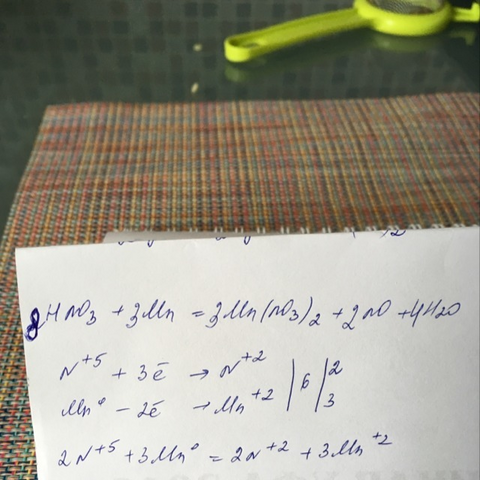 8HNO3 + 3Mn = 3Mn(NO3)2 + 2NO + 4H2O
N+5 + 3ē → N+2 | 6 | 2
Mn° - 2ē → Mn+2 | | 3
2N+5 + 3Mn° = 2N+2 + 3Mn+2